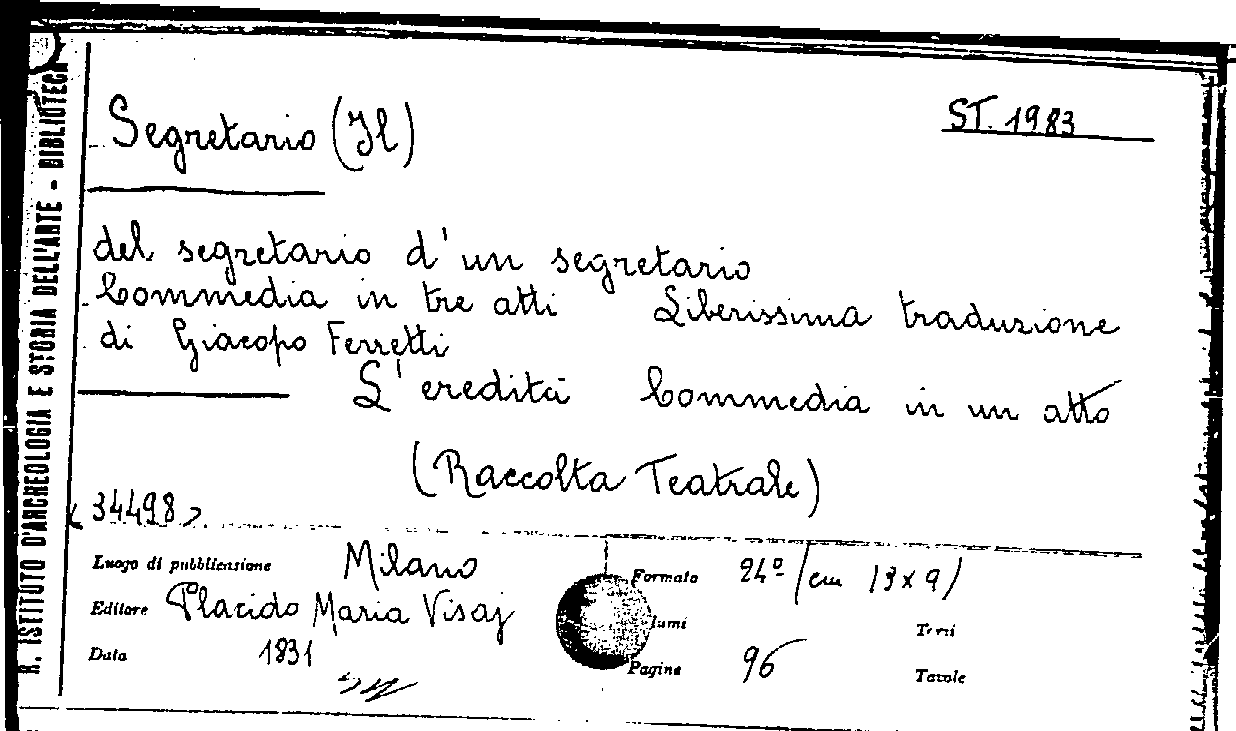 R. ISTITUTO D'ARCHEOLOGIA E STORIA DELL'ARTE - BIBLIOTECA
Segretario (Il)
ST. 1983
del segretario d'un segretario
Commedia in tre atti Liberissima traduzione
di Giacopo Ferretti
L'eredità Commedia in un atto
(Raccolta Teatrale)
<34498>
Luogo di pubblicazione Milano
Formato 24º (cm 13x9)
Editore Placido Maria Visaj
lumi
Tomi
Data 1831
Pagine 96
Tavole